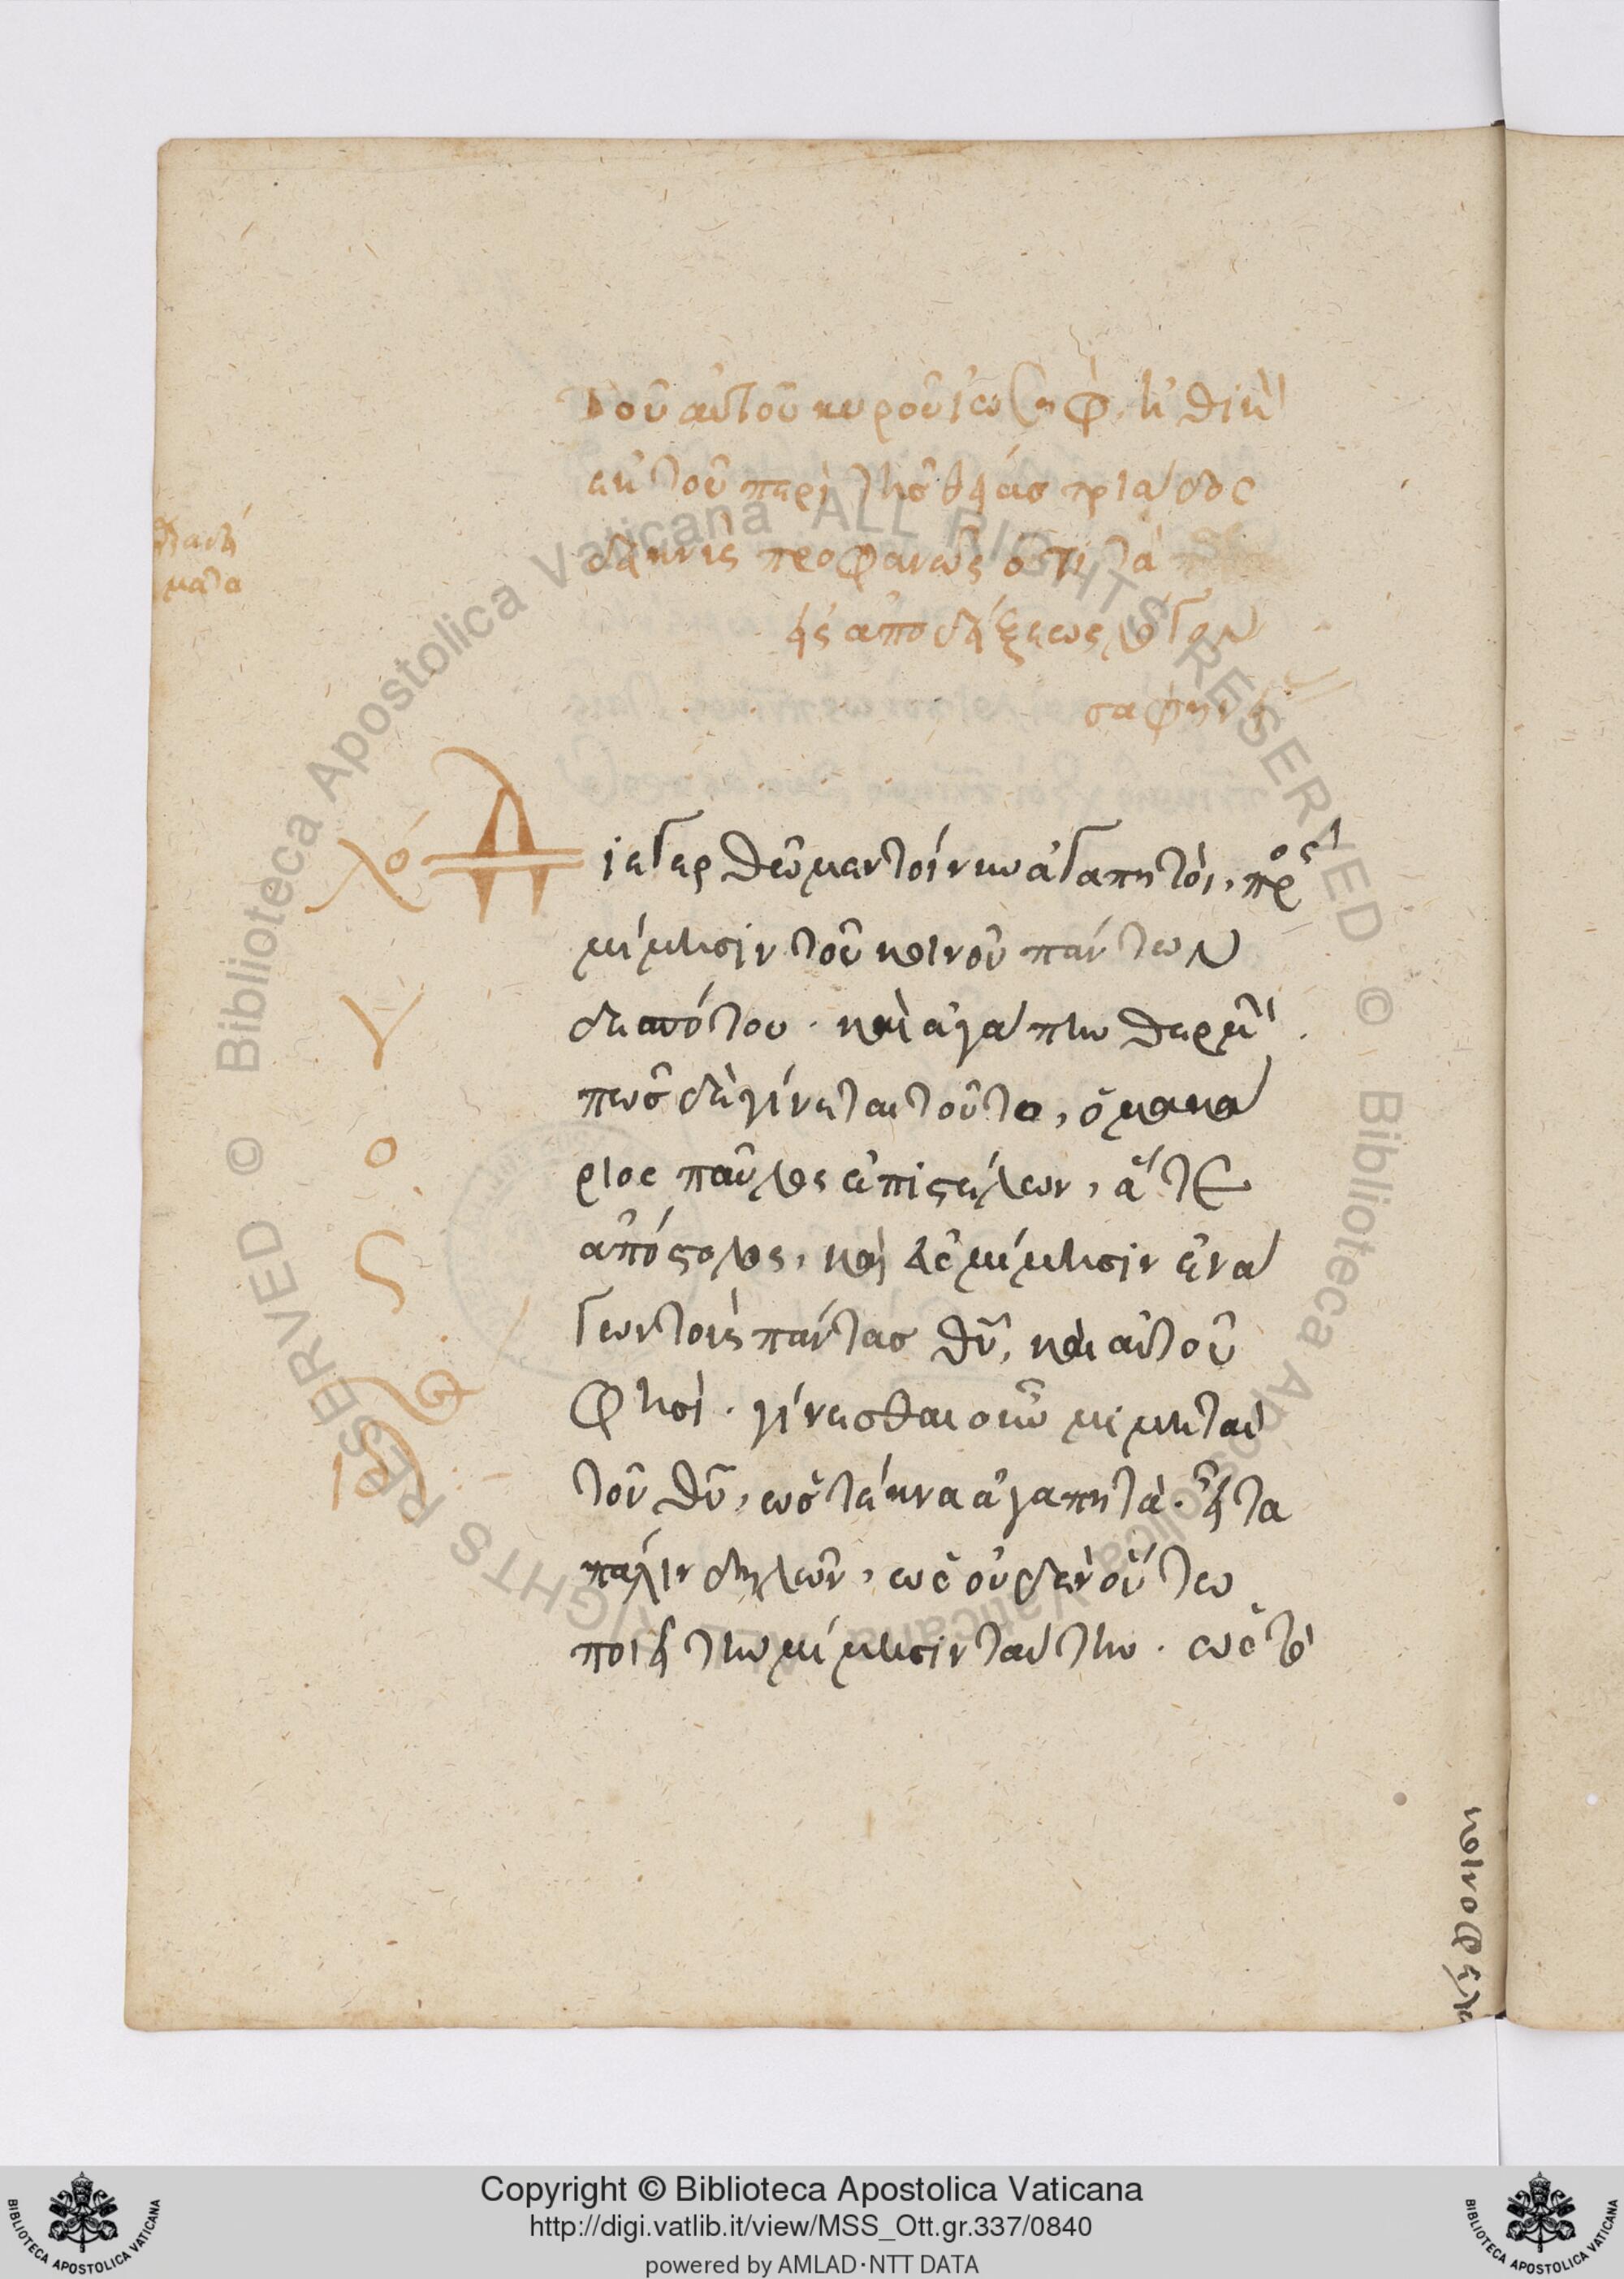 Τοῦ αὐτοῦ κυροῦ ἰωσὴφ. ἠθικὴ
ἐκ τοῦ περὶ τῆς θείας τριάδος
δεικνὺς προφανῶς ὅτι τὰ
εἰς ἀποδείξεως λόγον
σαφηνῆ
ματα
λό
Διεγερθῶμεν τοίνυν ἀγαπητοὶ, πρὸς
μίμησιν τοῦ κοινοῦ πάντων
δεσπότου. καὶ ἀγάπην θερμὴ
πῶς δὲ γίνεται τοῦτο, ὁ μακά
ριος παῦλος ἐπιστέλων, ἅτε
ἀπόστολος, καὶ εἰς μίμησιν ἐνά
γων τοὺς πάντας θῦ, καὶ αὐτοῦ
φησὶ. γίνεσθαι οὖν μιμηταὶ
τοῦ θῦ, ὡς τέκνα ἀγαπητὰ. εἶτα
πάλιν δηλῶν, ὡς οὐδὲν οὕτω
ποιεῖ τὴν μίμησιν ταύτην. ὡς τὸ
γ
ο
ς
Copyright © Biblioteca Apostolica Vaticana
http://digi.vatlib.it/view/MSS_Ott.gr.337/0840
powered by AMLAD·NTT DATA
BIBLIOTECA APOSTOLICA VATICANA
BIBLIOTECA APOSTOLICA VATICANA
Biblioteca Apostolica Vaticana ALL RIGHTS RESERVED ©
Biblioteca Apostolica Vaticana ALL RIGHTS RESERVED ©